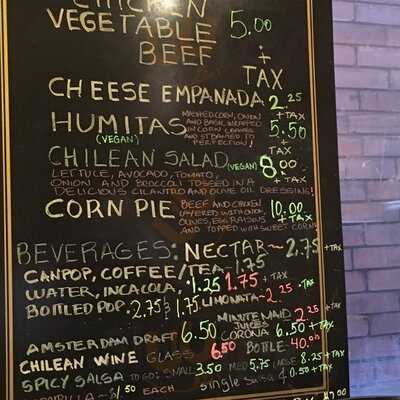 CHICKEN
VEGETABLE 5.00
BEEF + TAX
CHEESE EMPANADA 2.25 + TAX
HUMITAS (VEGAN) 5.50 + TAX
MASHED CORN, ONION
AND BASIL WRAPPED
IN CORN LEAVES
AND STEAMED TO
PERFECTION!
CHILEAN SALAD (VEGAN) 8.00 + TAX
LETTUCE, AVOCADO, TOMATO,
ONION AND BROCCOLI TOSSED IN A
DELICIOUS CILANTRO AND OLIVE OIL DRESSING!
CORN PIE 10.00 + TAX
BEEF AND CHICKEN
LAYERED WITH ONION,
OLIVES, EGG, RAISINS
AND TOPPED WITH SWEET CORN
BEVERAGES: NECTAR~ 2.75 + TAX
CAN POP, COFFEE/TEA~ 1.75
WATER, INCA COLA, 1.25 1.75 + TAX
BOTTLED POP 2.75 LIMONATA~ 2.25 + TAX
MINUTE MAID JUICES 2.25 + TAX
AMSTERDAM DRAFT 6.50 CORONA 6.50 + TAX
CHILEAN WINE GLASS 6.50 BOTTLE~ 40.00
SPICY SALSA TO GO: SMALL 3.50 MED 5.75 LARGE 8.25 + TAX
1.50 EACH single salsa 0.50 + TAX